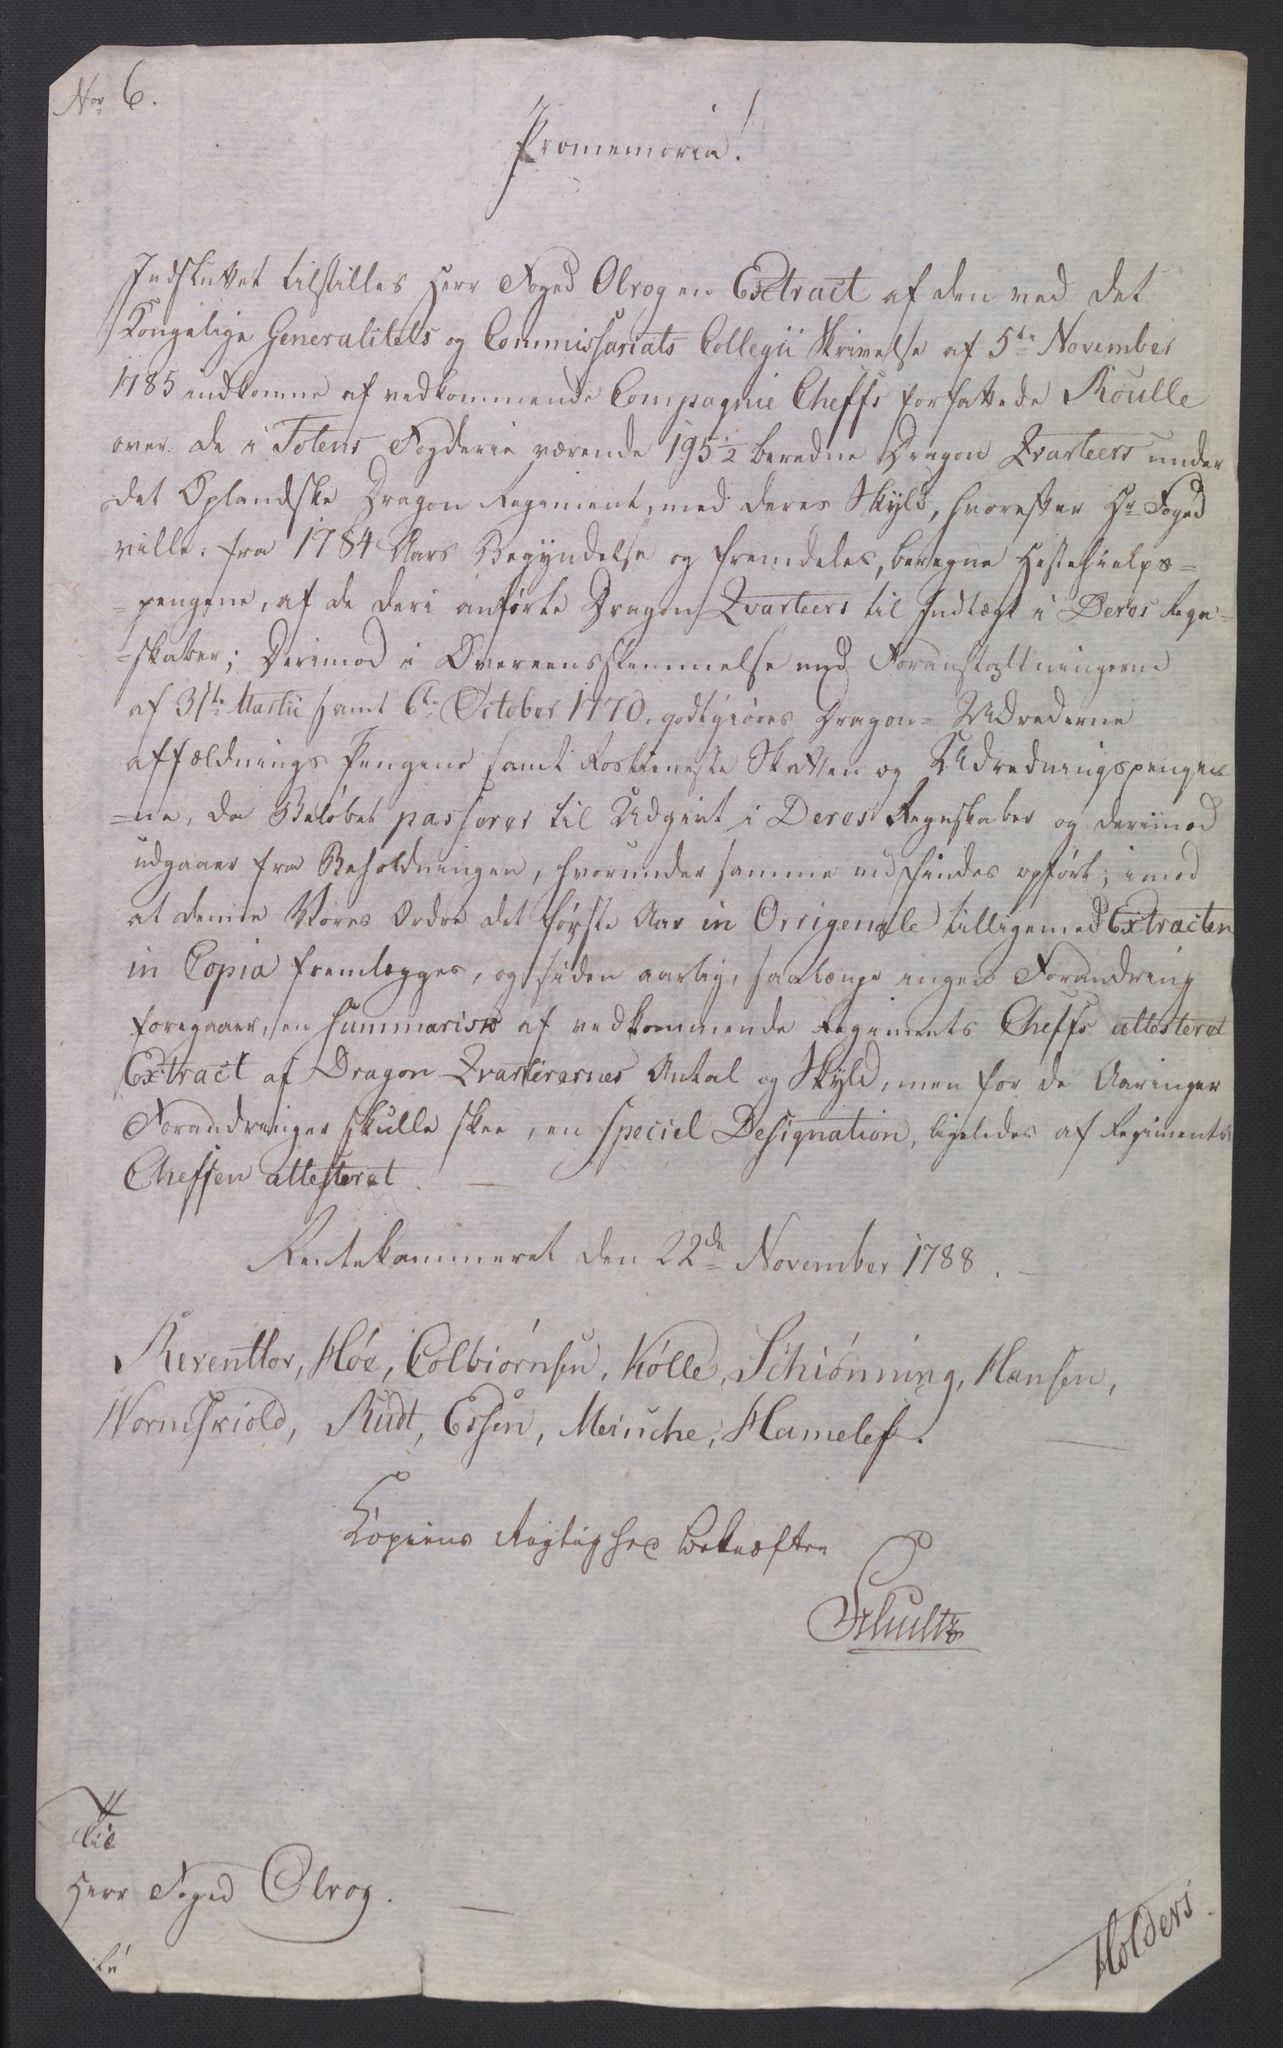 No 6.
Promemoria!
Indsluttet tilstilles Herr Foged Olrog en Extract af den ved det
Kongelige Generalitets og Commissariats Collegii Skrivelse af 5te November
1785 indkomne af vedkommende Compagnie Cheffs forfattede Roulle
over de i Totens Fogderie værende 195 1/2 beredne Dragon Qvarteers under
det Oplandske Dragon Regiment, med deres Skyld, hvorefter Hr Foged
ville, fra 1784 Aars Begÿndelse og fremdeles, beregne Hestehielps=
=pengene, af de deri anførte Dragon Qvarteers til Indtægt i Deres Regn=
=skaber; Derimod i Overeensstemmelse med Foranstaltningerne
af 31te Martii samt 6te October 1770. godtgiøres Dragon= Udrederne
affældnings Pengene samt Rostieneste Skatten og Udredningspengene
=ne, da Beløbet passerer til Udgivt i Deres Regnskaber og derimod
udgaaer fra Beholdningen, hvorunder samme indfindes opført; imod
at denne Vores Ordre det første Aar in Orrigenale tilligemed Extracten
in Copia fremlægges, og siden aarlig, saalænge ingen Forandring
foregaaer, en Summarisk af vedkommende Regiments Cheffs attesteret
Extract af Dragon Qvarterernes Antal og Skÿld, men for de Aaringer
Forandringer skulle skee, en speciel Designation, ligeledes af Regiments
Cheffen attesteret.
Rentekammeret den 22de November 1788.
Reventlov, Høe, Colbiørnsen, Kølle, Schiønning, Hansen,
Wormskiold, Rudt, Essen, Meinche, Hamelef.
Copiens Rigtighed bekræfter
Schultz
Til
Herr Foged Olrog.
Holders.